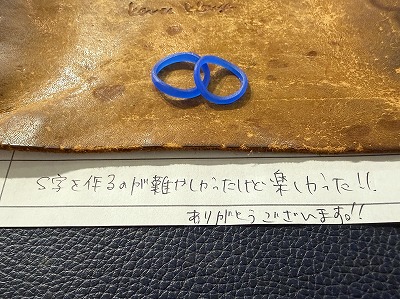 S字を作るのが難やしかったけど楽しかった!!
ありがとうございます!!